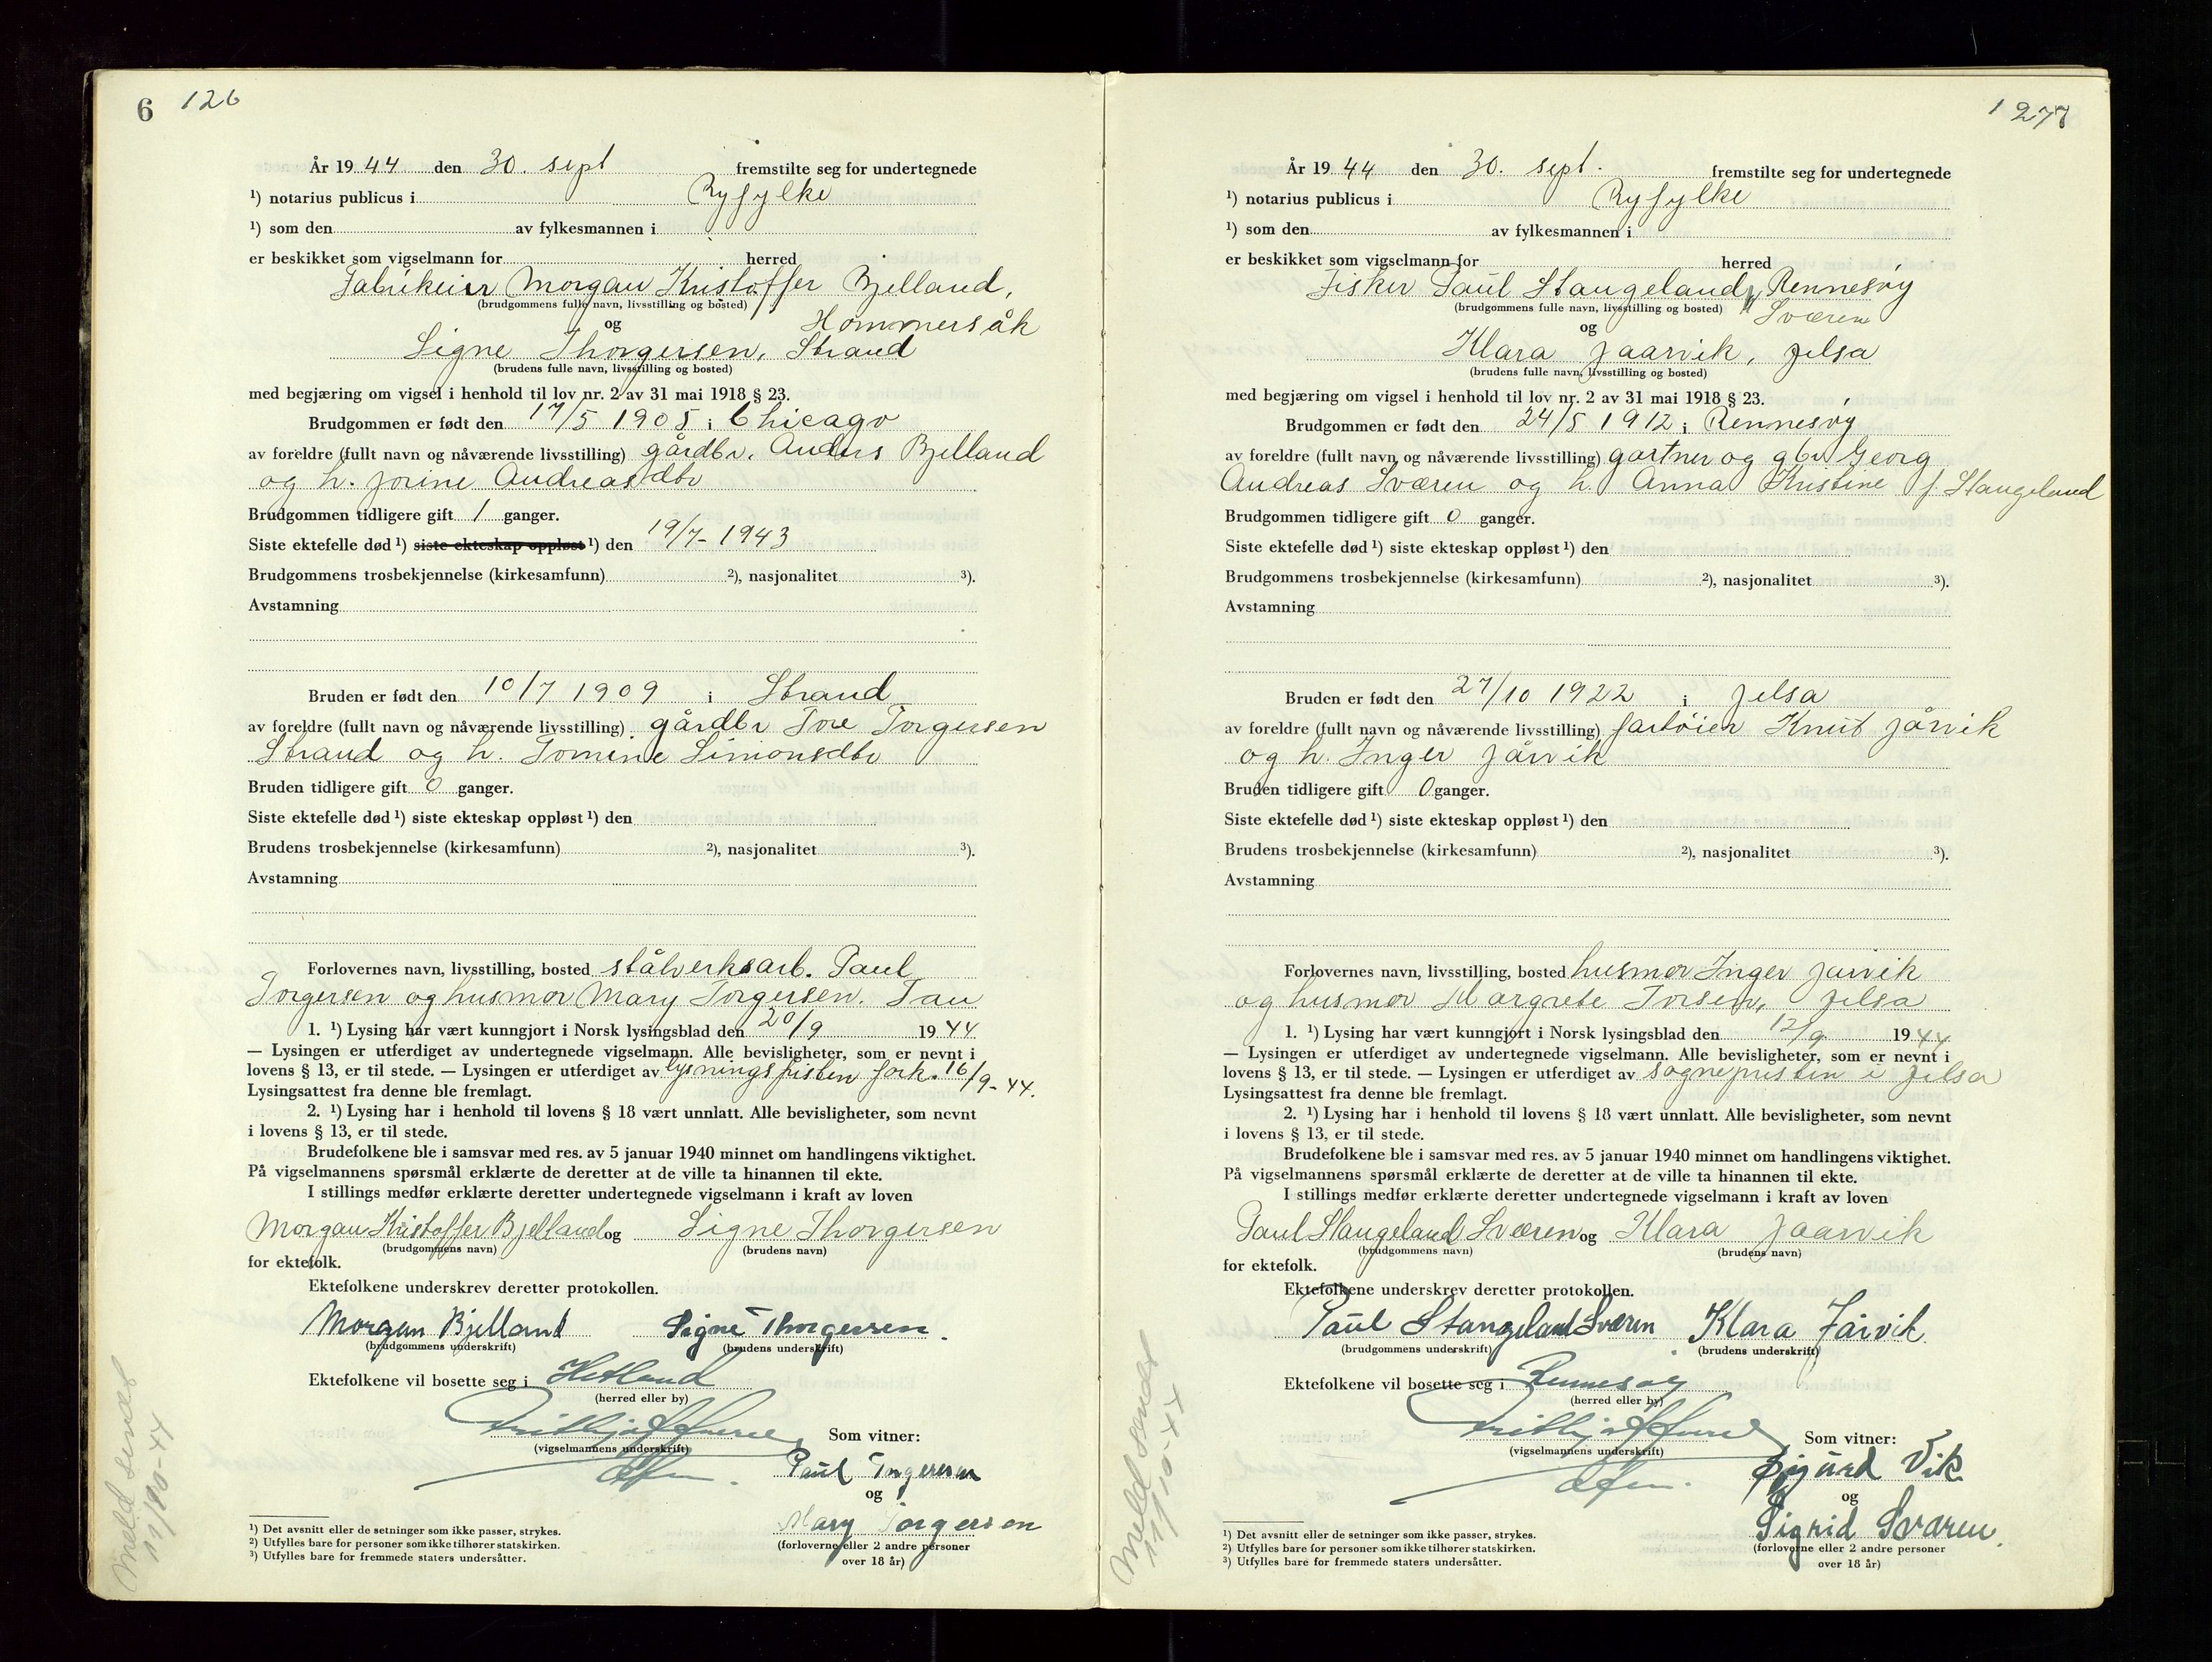 6 126
År 19 44 den 30. sept fremstilte seg for undertegnede
¹) notarius publicus i Ryfylke
¹) som den av fylkesmannen i
er beskikket som vigselmann for herred
Fabrikeier Morgan Kristoffer Bjelland,
(brudgommens fulle navn, livsstilling og bosted)
og Hommersåk
Signe Thorgersen, Strand
(brudens fulle navn, livsstilling og bosted)
med begjæring om vigsel i henhold til lov nr. 2 av 31 mai 1918 § 23.
Brudgommen er født den 17/5 1905 i Chicago
av foreldre (fullt navn og nåværende livsstilling) gårdbr. Anders Bjelland
og h. Jorine Andreasdtr
Brudgommen tidligere gift 1 ganger.
Siste ektefelle død ¹) siste ekteskap oppløst ¹) den 19/7- 1943
Brudgommens trosbekjennelse (kirkesamfunn) ²), nasjonalitet ³).
Avstamning
Bruden er født den 10/7 1909 i Strand
av foreldre (fullt navn og nåværende livsstilling) gårdbr Tore Torgersen
Strand og h. Tomine Simonsdtr
Bruden tidligere gift 0 ganger.
Siste ektefelle død ¹) siste ekteskap oppløst ¹) den
Brudens trosbekjennelse (kirkesamfunn) ²), nasjonalitet ³).
Avstamning
Forlovernes navn, livsstilling, bosted stålverksarb. Paul
Torgersen og husmor Mary Torgersen. Tau
1. ¹) Lysing har vært kunngjort i Norsk lysingsblad den 20/9 19 44
— Lysingen er utferdiget av undertegnede vigselmann. Alle bevisligheter, som er nevnt i
lovens § 13, er til stede. — Lysingen er utferdiget av lysningsfristen fork. 16/9-44.
Lysingsattest fra denne ble fremlagt.
2. ¹) Lysing har i henhold til lovens § 18 vært unnlatt. Alle bevisligheter, som nevnt
i lovens § 13, er til stede.
Brudefolkene ble i samsvar med res. av 5 januar 1940 minnet om handlingens viktighet.
På vigselmannens spørsmål erklærte de deretter at de ville ta hinannen til ekte.
I stillings medfør erklærte deretter undertegnede vigselmann i kraft av loven
Morgan Kristoffer Bjelland og Signe Thorgersen
(brudgommens navn) (brudens navn)
for ektefolk.
Ektefolkene underskrev deretter protokollen.
Morgan Bjelland Signe Thorgersen.
(brudgommens underskrift) (brudens underskrift)
Ektefolkene vil bosette seg i Hetland
(herred eller by)
(vigselmannens underskrift) Som vitner:
Paul Torgersen
og
Mary Torgersen
(forloverne eller 2 andre personer
over 18 år)
¹) Det avsnitt eller de setninger som ikke passer, strykes.
²) Utfylles bare for personer som ikke tilhører statskirken.
³) Utfylles bare for fremmede staters undersåtter.
Meld sendt
11/10-44
127 7
År 19 44 den 30. sept. fremstilte seg for undertegnede
¹) notarius publicus i Ryfylke
¹) som den av fylkesmannen i
er beskikket som vigselmann for herred
Fisker Paul Stangeland, Rennesøy
(brudgommens fulle navn, livsstilling og bosted) Sværen
og
Klara Jaarvik, Jelsa
(brudens fulle navn, livsstilling og bosted)
med begjæring om vigsel i henhold til lov nr. 2 av 31 mai 1918 § 23.
Brudgommen er født den 24/5 1912 i Rennesøy
av foreldre (fullt navn og nåværende livsstilling) gartner og gbr Georg
Andreas Sværen og h. Anna Kristine f. Stangeland
Brudgommen tidligere gift 0 ganger.
Siste ektefelle død ¹) siste ekteskap oppløst ¹) den
Brudgommens trosbekjennelse (kirkesamfunn) ²), nasjonalitet ³).
Avstamning
Bruden er født den 27/10 1922 i Jelsa
av foreldre (fullt navn og nåværende livsstilling) fartøier Knut Jårvik
og h. Inger Jårvik
Bruden tidligere gift 0 ganger.
Siste ektefelle død ¹) siste ekteskap oppløst ¹) den
Brudens trosbekjennelse (kirkesamfunn) ²), nasjonalitet ³).
Avstamning
Forlovernes navn, livsstilling, bosted husmor Inger Jarvik
og husmor Margrete Torsen, Jelsa
1. ¹) Lysing har vært kunngjort i Norsk lysingsblad den 12/9 19 44
— Lysingen er utferdiget av undertegnede vigselmann. Alle bevisligheter, som er nevnt i
lovens § 13, er til stede. — Lysingen er utferdiget av sognepresten i Jelsa
Lysingsattest fra denne ble fremlagt.
2. ¹) Lysing har i henhold til lovens § 18 vært unnlatt. Alle bevisligheter, som nevnt
i lovens § 13, er til stede.
Brudefolkene ble i samsvar med res. av 5 januar 1940 minnet om handlingens viktighet.
På vigselmannens spørsmål erklærte de deretter at de ville ta hinannen til ekte.
I stillings medfør erklærte deretter undertegnede vigselmann i kraft av loven
Paul Stangeland Sværen og Klara Jaarvik
(brudgommens navn) (brudens navn)
for ektefolk.
Ektefolkene underskrev deretter protokollen.
Paul Stangeland Sværen Klara Jårvik
(brudgommens underskrift) (brudens underskrift)
Ektefolkene vil bosette seg i Rennesøy
(herred eller by)
(vigselmannens underskrift) Som vitner:
Sigurd Vik
og
Sigrid Sværen.
(forloverne eller 2 andre personer
over 18 år)
¹) Det avsnitt eller de setninger som ikke passer, strykes.
²) Utfylles bare for personer som ikke tilhører statskirken.
³) Utfylles bare for fremmede staters undersåtter.
Meld sendt
11/10-44